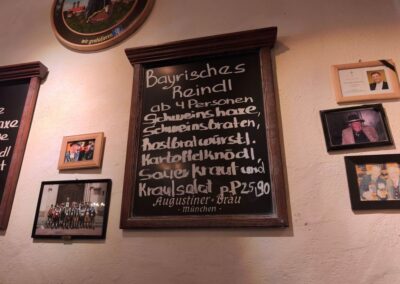 wir gratulieren
Bayrisches
Reindl
ab 4 Personen
Schweinshaxe,
Schweinsbraten,
Rostbratwürstl.
Kartoffelknödl,
Sauerkraut und
Krautsalat p.P 25,90
Augustiner-Bräu
- München -